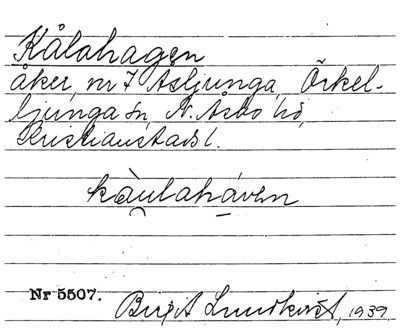 Kålahagen
åker, nr 7 Åsljunga, Örkel-
ljunga sn, N. Åsbo hd,
Kristianstads l.
kàulaháven
Nr 5507.
Birgit Lundkvist, 1939